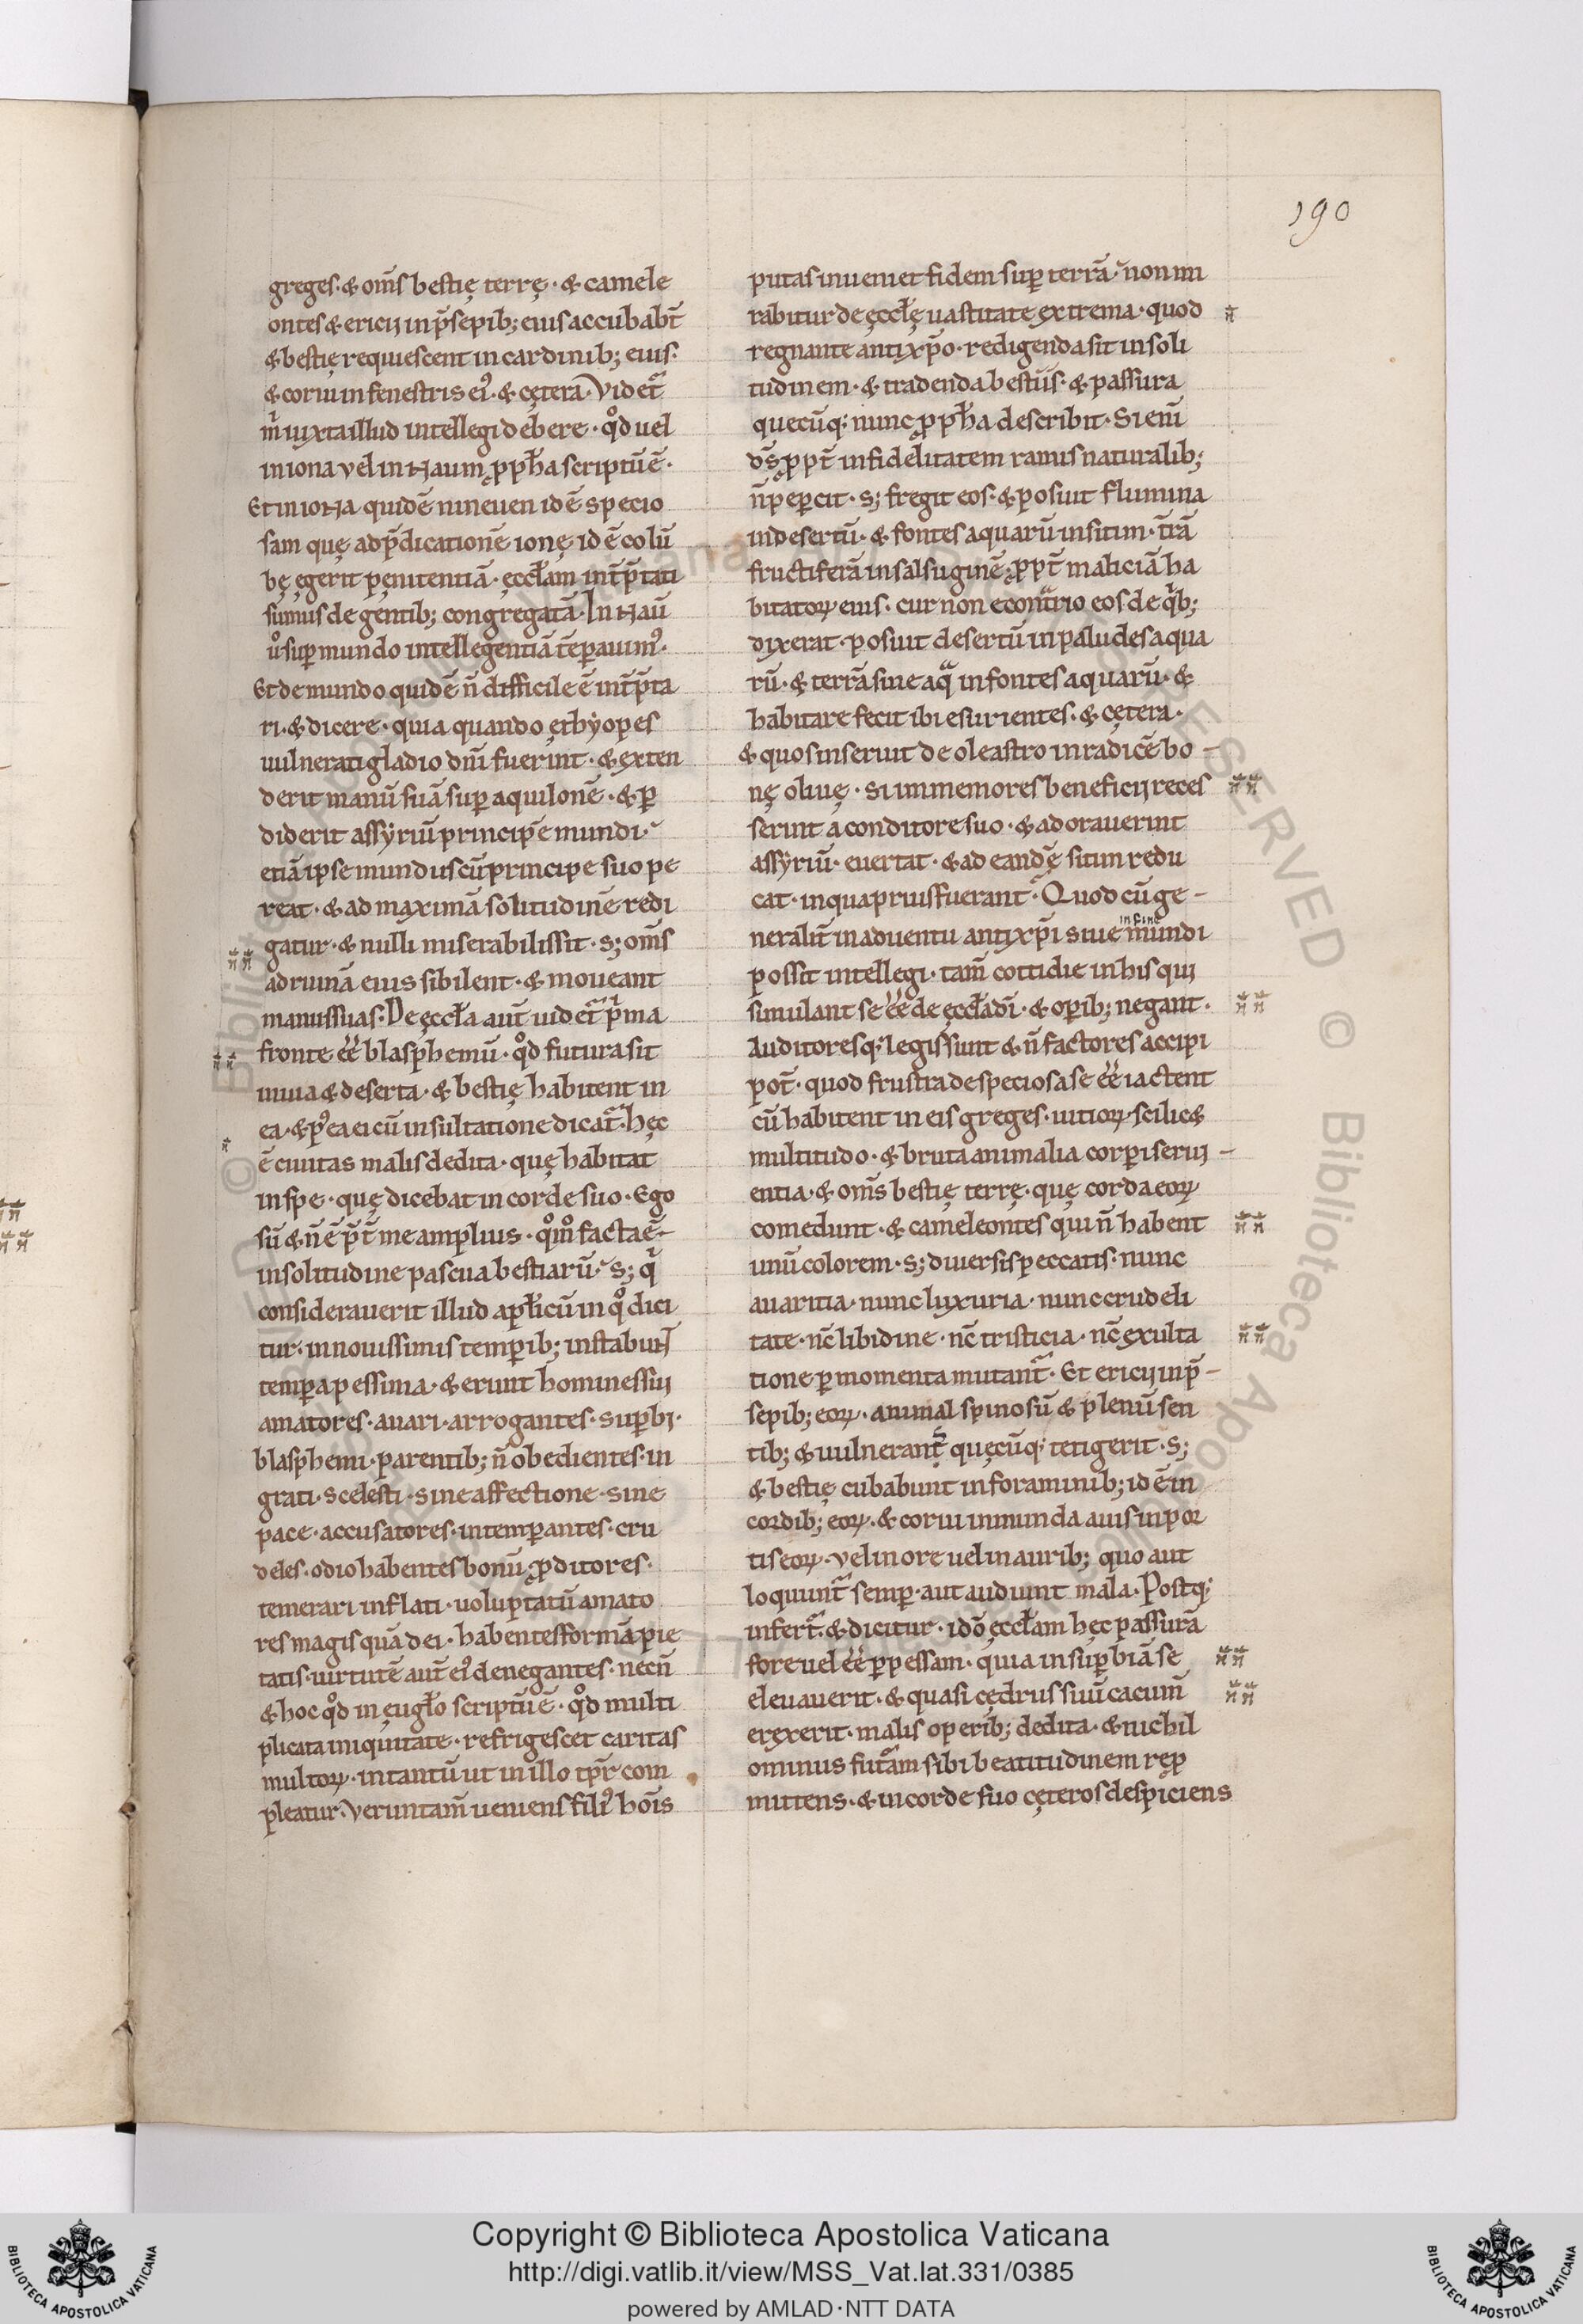 190
greges · & om̄s bestię terrę · & camele
ontes & ericij in p̄sepib; eius accubabt̄
& bestię requiescent in cardinib; eius ·
& corui in fenestris ei᷒ · & cętera · Videt᷑
m̄ iuxta illud intellegi debere · qd̊ uel
in iona vel in Naum ꝓph̄a scriptū ē ·
Et in ioNa quidē nineuen id ē specio
sam quę ad p̄dicationē ionę id ē colū
bę egerit pęnitentiā · ęccl̄am int̄p̄tati
sumus de gentib; congregatā · In Naū
ů sup̱ mundo intellegentiā tēp̱auim᷒ ·
Et de mundo quidē n̄ difficile ē int̄p̄ta
ri · & dicere · quia quando ęthyopes
uulnerati gladio dn̄i fuerint · & exten
derit manū suā sup̱ aquilonē · & p̱
diderit assyriū principē mundi ·
etiā ipse mundus cū principe suo pe
reat · & ad maximā solitudinē redi
gatur · & nulli miserabilis sit · s; om̄s
ad ruinā eius sibilent · & moueant
manus suas · De ęccl̄a aut̄ uidet᷑ pͥma
fronte ēē blasphemū · qd̊ futura sit
inuia & deserta · & bestię habitent in
ea · & p᷒ ea ei cū insultatione dicat᷑ · hęc
ē ciuitas malis dedita · quę habitat
in spe · quę dicebat in corde suo · Ego
sū & n̄ ē p̄t̄ me amplius · qm̊̊ facta ē
in solitudine pascua bestiarū · s; qͥ
considerauerit illud apl̄icū in qͦ dici
tur · in nouissimis temp̱ib; instabuN̄
temp̱a pessima · & erunt homines sui
amatores · auari · arrogantes · sup̱bi ·
blasphemi · parentib; n̄ obedientes · in
grati · scelesti · sine affectione · sine
pace · accusatores · intemp̱antes · cru
deles · odio habentes bonū · ꝓditores ·
temerari inflati · uoluptatū amato
res magis quā dei · habentes formā pie
tatis · uirtutē aut̄ ei᷒ denegantes · necn̄
& hoc qd̊ in eugl̄o scriptū ē · qd̊ multi
plicata iniquitate · refrigescet caritas
multoꝝ · in tantū ut in illo tp̄r com
pleatur · Veruntam̄ ueniens fili᷒ hōis
putas inueniet fidem sup̱ terrā · non mi
rabitur de ęccl̄ę uastitate extrema · quod
regnante antixp̄o · redigenda sit in soli
tudinem · & tradenda bestiis · & passura
quecūq; nunc ꝓph̄a describit · Si eni̅
ds̄ ꝓpt̄ infidelitatem ramis naturalib;
n̄ pep̱cit · s; fregit eos · & posuit flumina
in desertū · & fontes aquarū in sitim · t̄rā
fructiferā in salsuginē ꝓpt̄ maliciā ha
bitatoꝝ eius · cur non econtͣrio eos de qͥb;
dixerat · posuit desertū in paludes aqua
rū · & terrā sine aqͣ in fontes aquarū · &
habitare fecit ibi esurientes · & cętera ·
& quos inseruit de oleastro in radicē bo -
nę oliuę · si immemores beneficij reces
serint a conditore suo · & adorauerint
assyriū · euertat · & ad eandē sitim redu
cat · in qua prius fuerant · Quod cū ge -
neralit̄ in aduentu antixp̄i siue in fine mundi
possit intellegi · tam̄ cottidie in his qui
simulant se ēē de ęccl̄a dī · & op̱ib; negant ·
Auditoresq; legis sunt & n̄ factores accipi
pot̄ · quod frustra de speciosa se ēē iactent
cū habitent in eis greges · uitioꝝ scilic&
multitudo · & bruta animalia corp̱i serui -
entia · & om̄s bestię terrę · quę corda eoꝝ
comedunt · & cameleontes qui n̄ habent
unū colorem · s; diuersis peccatis · nunc
auaritia · nunc luxuria · nunc crudeli
tate · nc̄ libidine · nc̄ tristicia · nc̄ exulta
tione p̱ momenta mutant᷑ · Et ericij in p̄ -
sepib; eoꝝ · animal spinosū & plenū sen
tib; & uulnerans quęcūq; tetigerit · s;
& bestię cubabunt in foraminib; id ē in
cordib; eoꝝ · & corui inmunda auis in por
tis eoꝝ · vel in ore uel in aurib; quo aut
loquunt᷑ semp̱ · aut audiunt mala · Postq;
infert᷑ · & dicitur · idō ęccl̄am hęc passurā
fore uel ēē p̱pessam · quia in sup̱biā se
eleuauerit · & quasi cędrus suū cacum̄
erexerit · malis op̱erib; dedita · & nichil
ominus futͣam sibi beatitudinem rep̱
mittens · & in corde suo cęteros despiciens
Copyright © Biblioteca Apostolica Vaticana
http://digi.vatlib.it/view/MSS_Vat.lat.331/0385
powered by AMLAD·NTT DATA
BIBLIOTECA APOSTOLICA VATICANA
BIBLIOTECA APOSTOLICA VATICANA